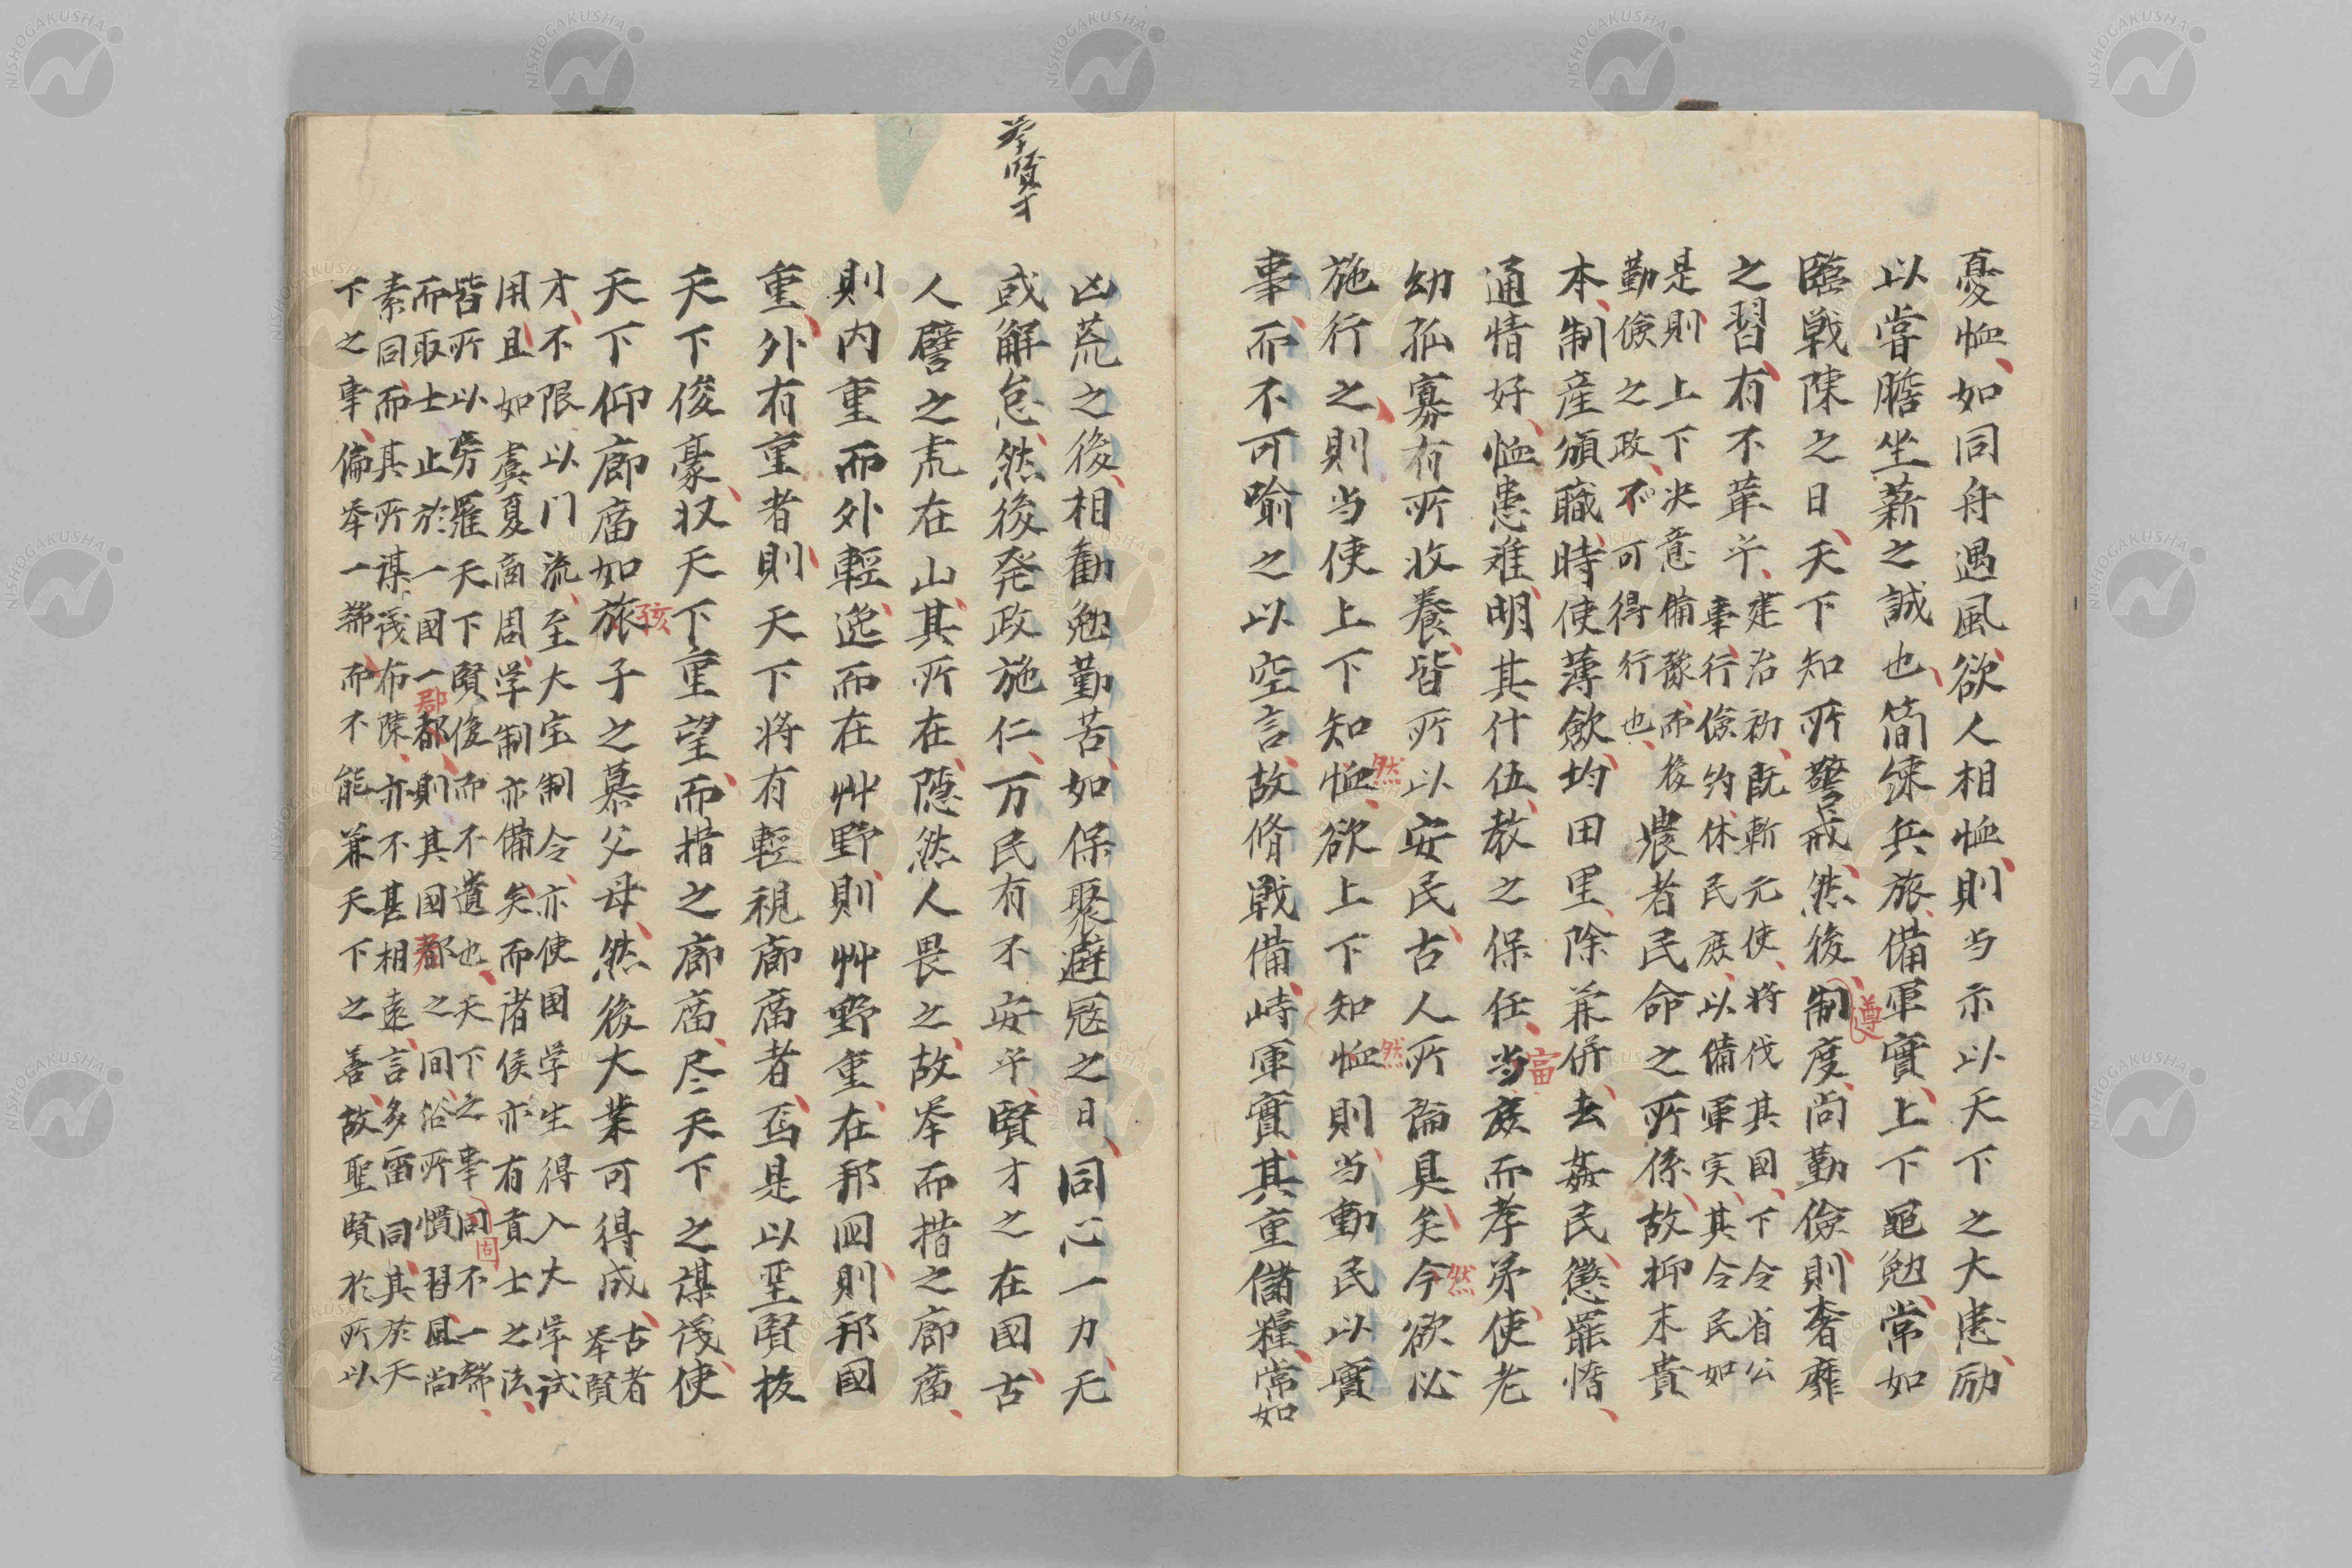 憂恤如同舟遇風欲人相恤則当示以天下之大患励
以嘗膽坐薪之誠也簡練兵旅備軍實上下黽勉常如
臨戦陳之日天下知所警戒然後制度尚勤儉則奢靡
遵
之習有不革乎建治初既斬元使将伐其國下令省公
事行儉約休民庶以備軍実其令民如
是則上下决意備豫而後
勤儉之政不可得行也
農者民命之所係故抑末貴
本制産頒職時使薄歛均田里除兼併去姦民懲罷惰
通情好恤患難明其什伍教之保任当庶而孝弟使老
富
幼孤寡有所收養皆所以安民古人所論具矣今欲必
然
施行之則当使上下知恤欲上下知恤則当動民以實
然
然
事而不可喻之以空言故脩戰備峙軍實其重儲糧常如
举賢才
凶荒之後相勸勉勤苦如保聚避寇之日同心一力无
或解怠然後発政施仁万民有不安乎賢才之在國古
人譬之虎在山其所在隠然人畏之故举而措之廊廟
則内重而外輕逸而在艸野則艸野重在邦国則邦國
重外有重者則天下将有輕視廊廟者焉是以聖賢抜
天下俊豪収天下重望而措之廊廟尽天下之謀議使
天下仰廊廟如旅子之慕父母然後大業可得成古者
举賢
孩
才不限以门流至大宝制令亦使国学生得入大学試
用且如虞夏商周学制亦備矣而諸侯亦有貢士之法
皆所以旁羅天下賢俊而不遺也天下之事同不一端
固
而取士止於一國一都則其國都之间俗所慣習風尚
郡
素同而其所謀議布陳亦不甚相遠言多雷同其於天
下之事偏举一端而不能兼天下之善故聖賢於所以